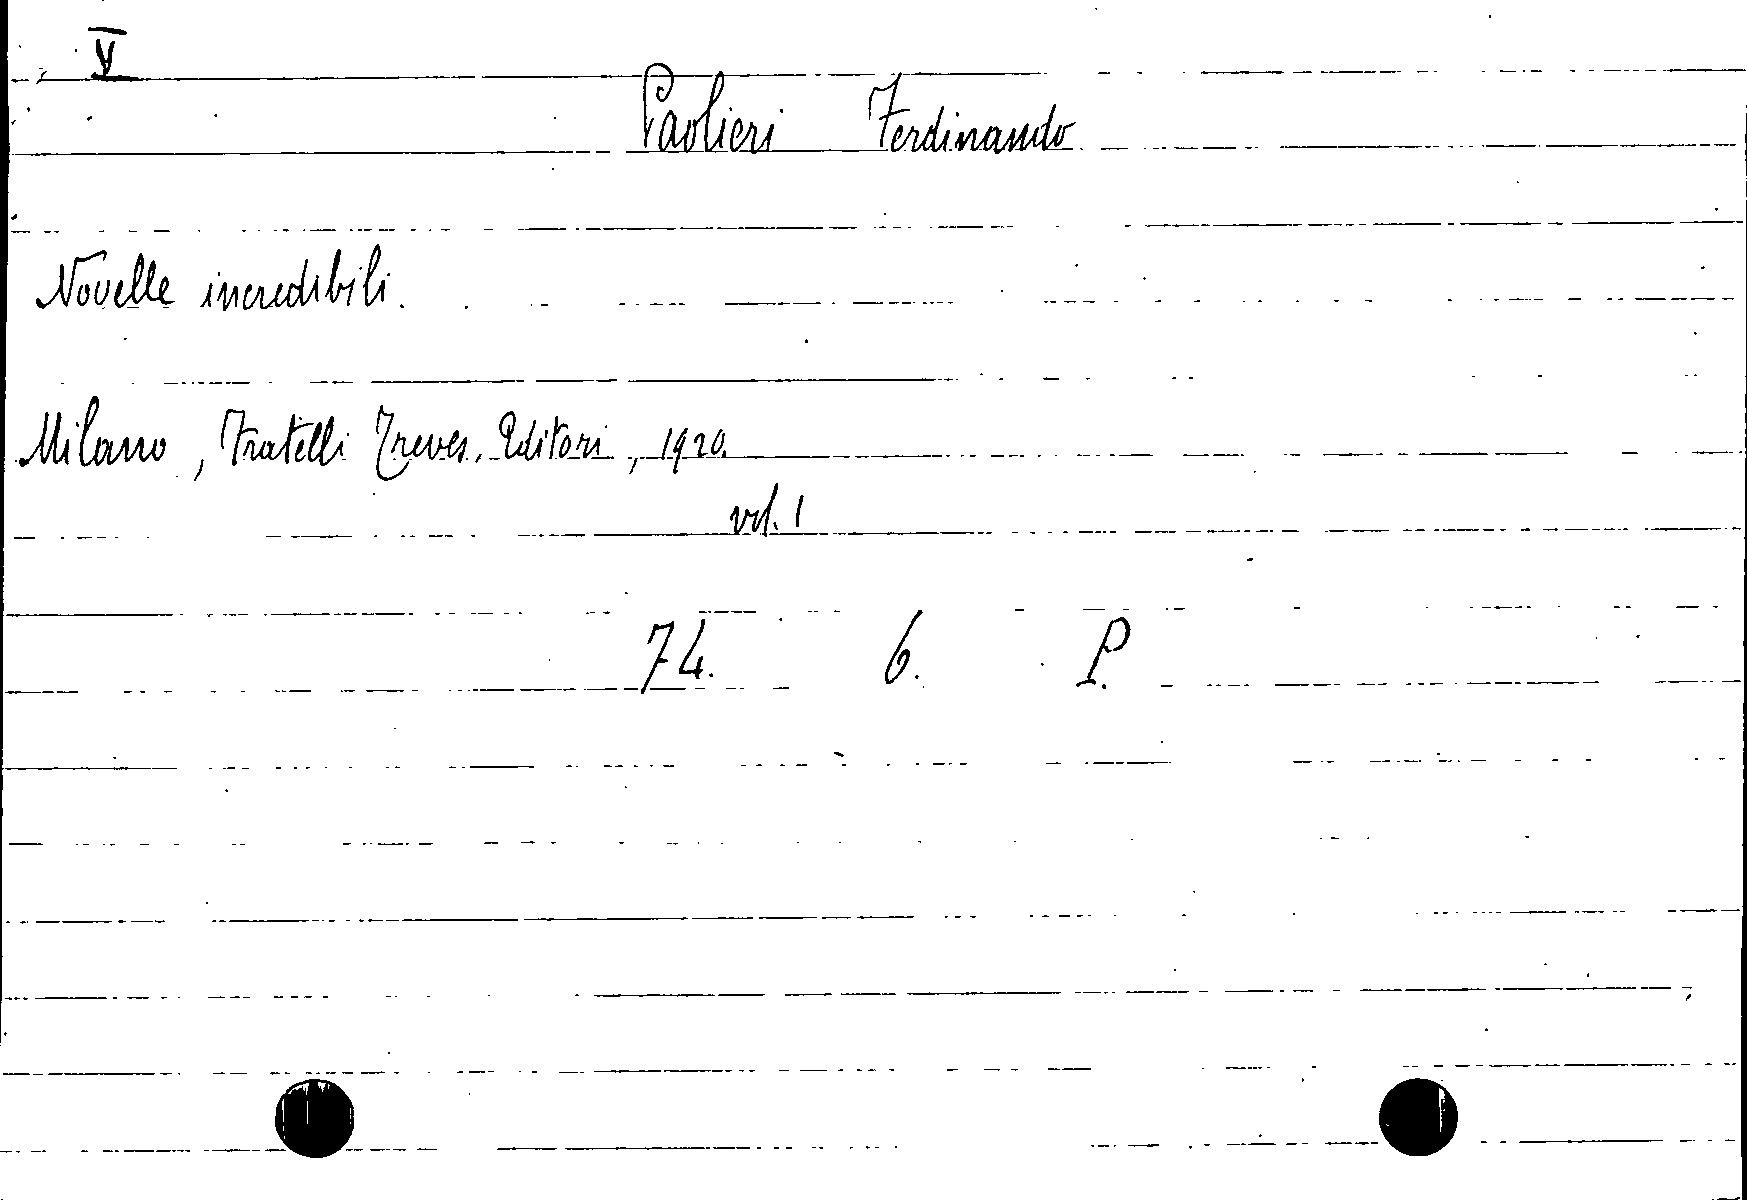 V
Paolieri Ferdinando
Novelle incredibili.
Milano, Fratelli Treves, Editori, 1920.
vol. 1
74. 6. P.